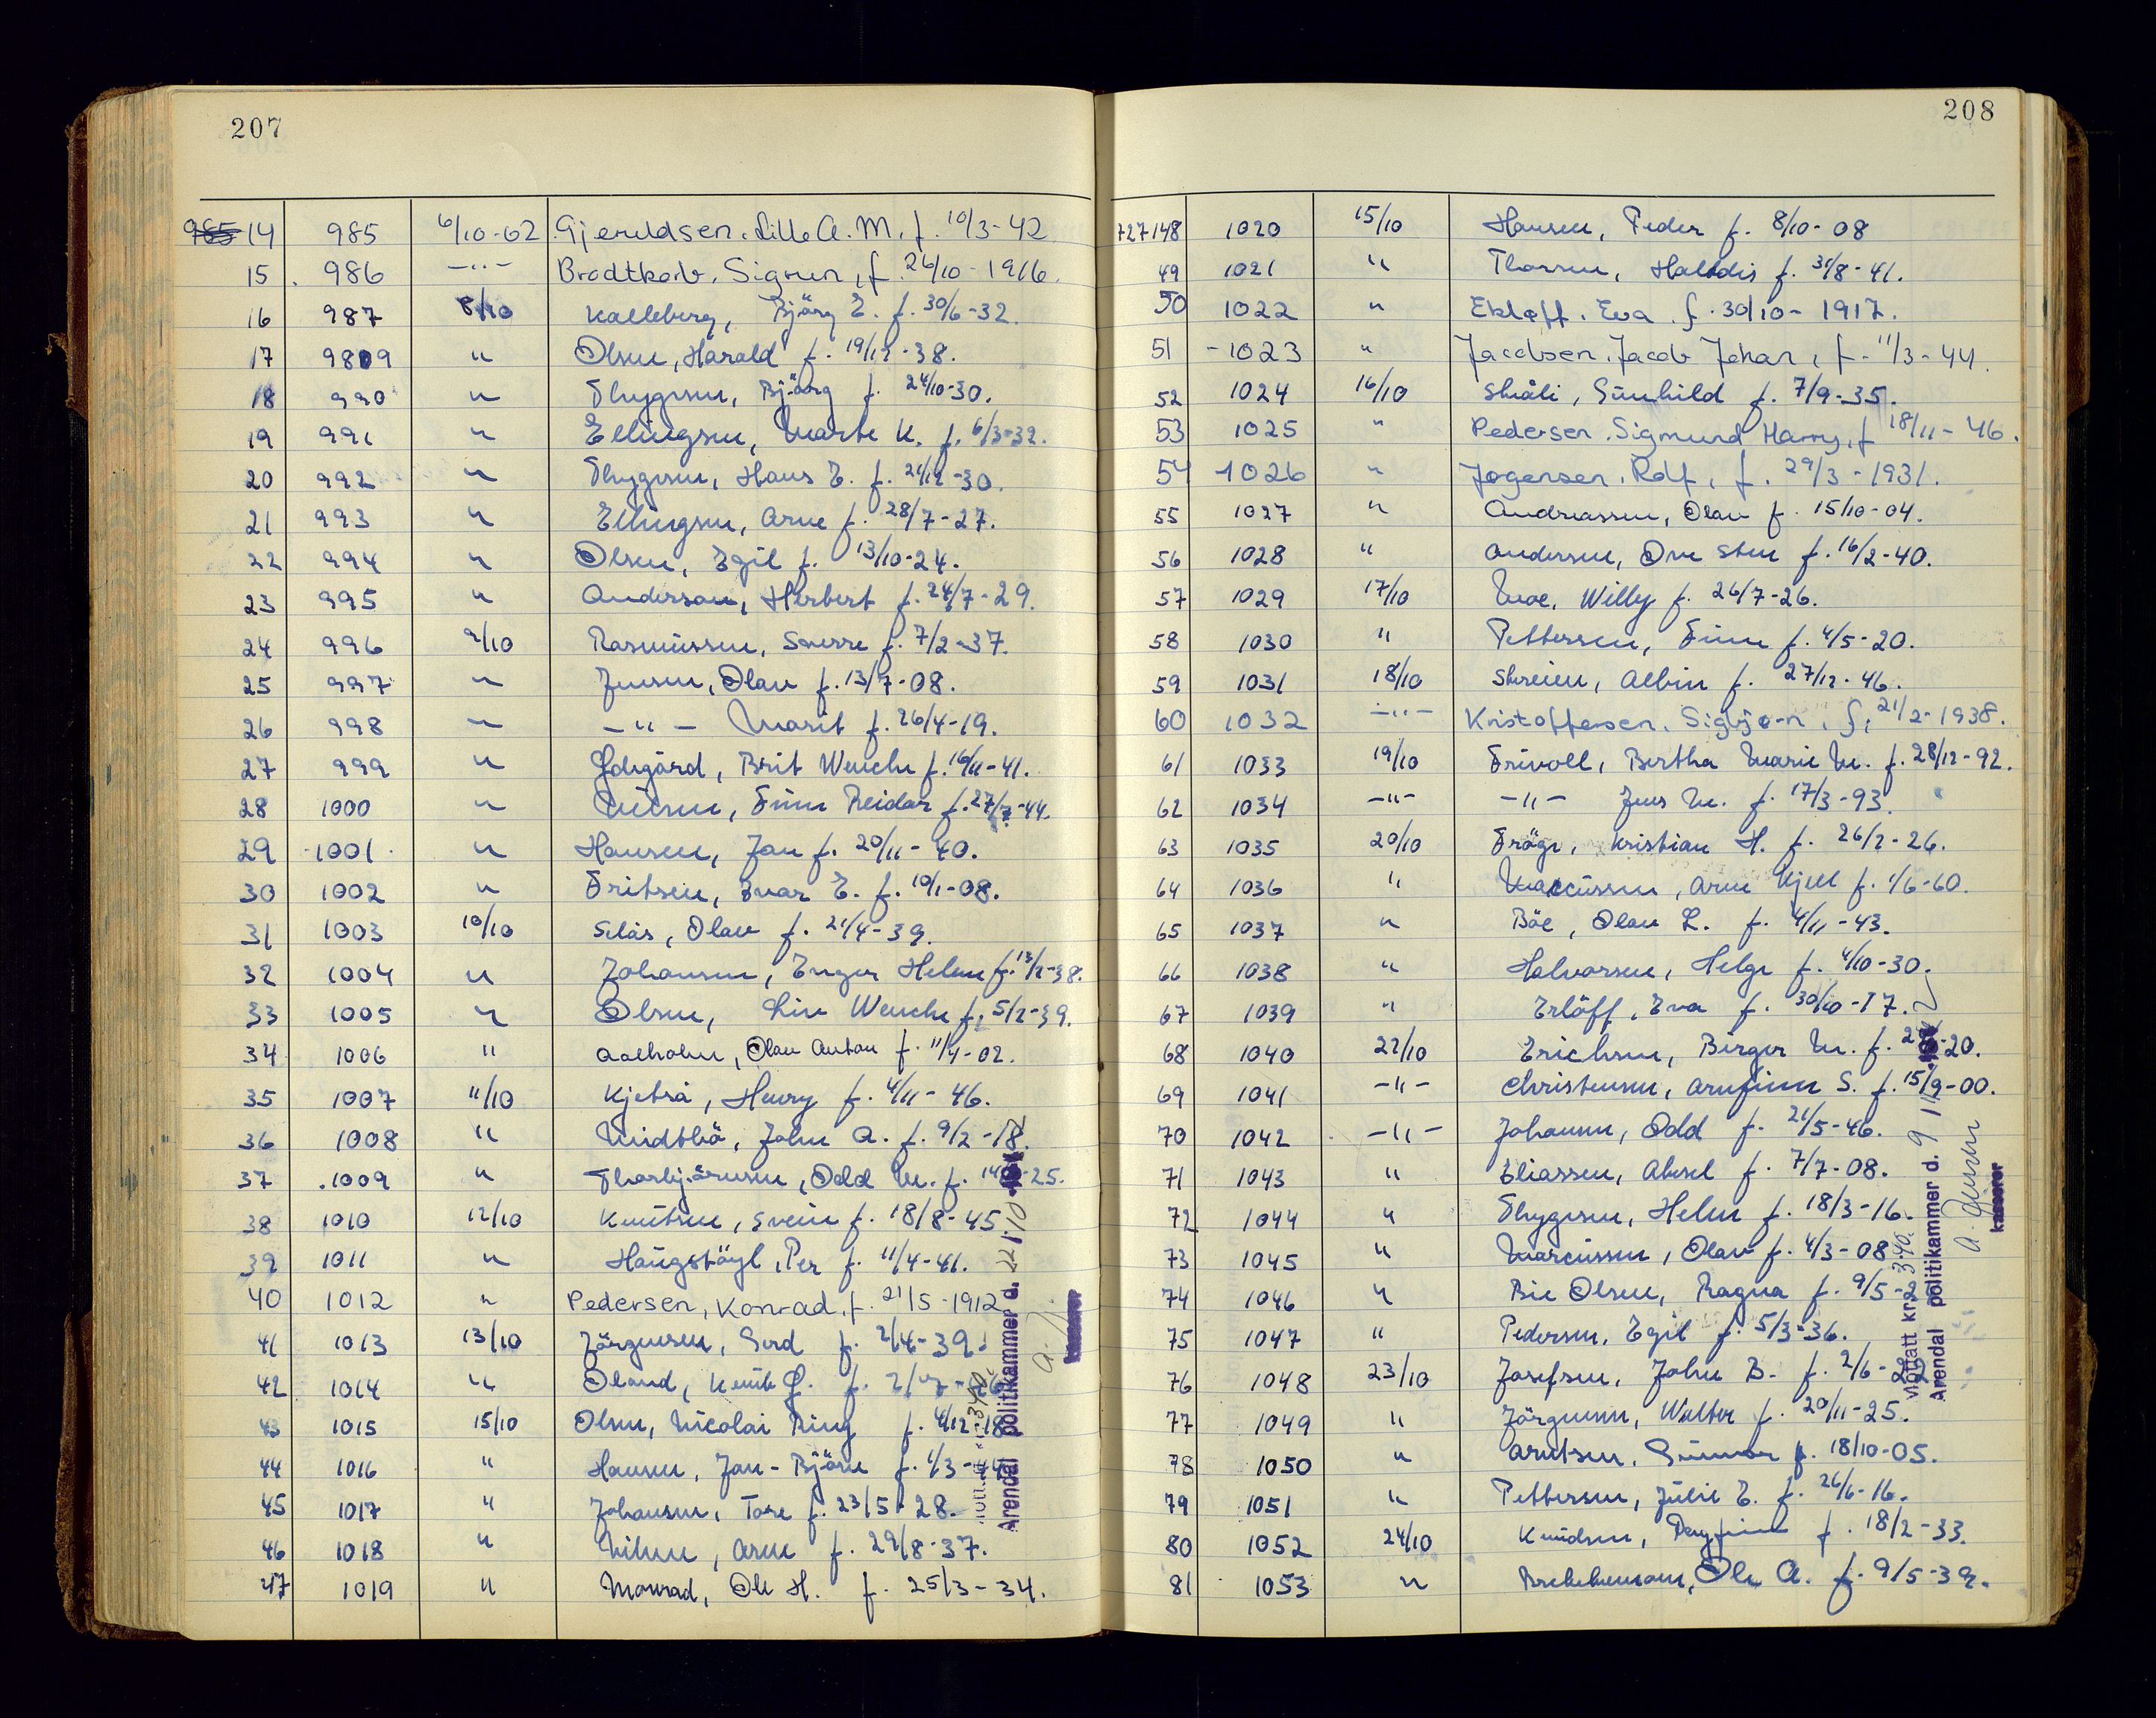 207
985 14 985 6/10-62 Gjeruldsen. Lille A. M. f. 10/3-42
15 986 -"- Brodtkorb. Sigrun, f. 26/10-1916.
16 987 8/10 Kalleberg, Bjärg E. f. 30/6-32.
17 989 " Olsen, Harald f. 19/12-38.
18 990 " Thygesen, Bjärg f. 24/10-30.
19 991 " Ellingsen, Marte K. f. 6/3-32.
20 992 " Thygesen, Hans E. f. 21/12-30.
21 993 " Ellingsen, Arne f. 28/7-27.
22 994 " Olsen, Egil f. 13/10-24.
23 995 " Anderson, Herbert f. 24/7-29.
24 996 9/10 Rasmussen, Sverre f. 7/2-37.
25 997 " Jensen, Olav f. 13/7-08.
26 998 " -"- Marit f. 26/4-19.
27 999 " Ødegård, Brit Wenche f. 16/11-41.
28 1000 " Nilsen, Finn Reidar f. 27/7-44.
29 1001 " Hansen, Jan f. 20/11-40.
30 1002 " Fritsen, Ivar E. f. 10/1-08.
31 1003 10/10 Selås, Olav f. 21/4-39.
32 1004 " Johansen, Inger Helene f. 13/2-38.
33 1005 " Olsen, Liv Wenche f. 5/2-39.
34 1006 " Aalholm, Olav Anton f. 11/4-02.
35 1007 11/10 Kjetså, Henry f. 4/11-46.
36 1008 " Midtbö, John A. f. 9/2-18.
37 1009 " Thorbjörnsen, Odd M. f. 14 -25.
38 1010 12/10 Knutsen, Svein f. 18/8-45
39 1011 " Haugstöyl, Per f. 11/4-41.
40 1012 " Pedersen, Konrad, f. 21/5-1912
41 1013 13/10 Jörgensen, Gerd f. 2/4-39.
42 1014 " Öland, Knut f.
43 1015 15/10 Olsen, Nicolai Ring f. 4/12-18
44 1016 " Hansen, Jan-Björn f. 1/3-44
45 1017 " Johansen, Tore f. 23/5-28.
46 1018 " Nilsen, Arne f. 29/8-37.
47 1019 " Monrad, Ole H. f. 25/3-34.
Arendal politikammer d. 22/10
kasserer
208
727148 1020 15/10 Hansen, Peder f. 8/10-08
49 1021 " Thorsen, Halldis f. 31/8-41.
50 1022 " Ekløff. Eva. f. 30/10-1917.
51 -1023 " Jacobsen. Jacob Johan, f. 11/3-44.
52 1024 16/10 Skåli, Gunhild f. 7/9-35.
53 1025 " Pedersen. Sigmund Harry, f 18/11-46.
54 1026 " Jøgensen. Rolf, f. 29/3-1931.
55 1027 " Andreassen, Olav f. 15/10-04.
56 1028 " Andersen, Ove Sten f. 16/2-40.
57 1029 17/10 Moe, Willy f. 26/7-26.
58 1030 " Pettersen, Finn f. 4/5-20.
59 1031 18/10 Skreien, Albin f. 27/12-46.
60 1032 -"- Kristoffersen. Sigbjørn, f, 21/2-1938.
61 1033 19/10 Frivoll, Bertha Marie M. f. 28/12-92.
62 1034 -"- -"- Jens M. f. 17/3-93.
63 1035 20/10 Kristian H. f. 26/2-26.
64 1036 " Marcussen, Arne Kjell f. 1/6-60.
65 1037 " Böe, Olav L. f. 4/11-43.
66 1038 " Halvorsen, Helge f. 4/10-30.
67 1039 " Erlöff, Eva f. 30/10-17.
68 1040 22/10 Erichsen, Birger M. f. -20.
69 1041 -"- Christensen, Arnfinn S. f. 15/9-00.
70 1042 -"- Johansen, Odd f. 21/5-46.
71 1043 " Eliassen, Aksel f. 7/7-08.
72 1044 " Thygesen, Helen f. 18/3-16.
73 1045 " Marcussen, Olav f. 4/3-08
74 1046 " Rie Olsen, Ragna f. 9/5-2
75 1047 " Pedersen, Egil f. 5/3-36.
76 1048 23/10 Josefsen, John B. f. 2/6-22
77 1049 " Jörgensen, Walter f. 20/11-25.
78 1050 " Arntsen, Gunnar f. 18/10-05.
79 1051 " Pettersen, Julie E. f. 26/6-16.
80 1052 24/10 Knudsen, Dagfinn f. 18/2-33.
81 1053 " Ole A. f. 9/5-39.
Mottatt kr. 340.
Arendal politikammer d. 9/11
A. Jensen
kasserer